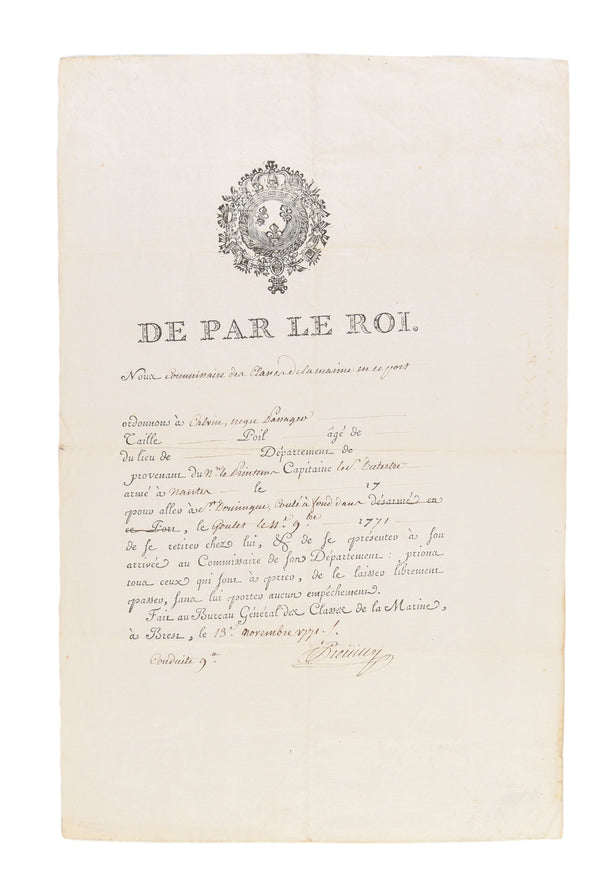 DE PAR LE ROI.
Nous Commissaire des Classes de la marine en ce port
ordonnons à Calvin, negre Passager
Taille Poil âgé de
du lieu de Département de
provenant du Nre. le Printems Capitaine le Sr.
armé à Nantes le 17
pour aller à St. Domingue, Coulé à fond dans désarmé en
ce Port, le Goulet le 4e. 9bre 1771
de se retirer chez lui, & de se présenter à son
arrivée au Commissaire de son Département : prions
tous ceux qui sont à prier, de le laisser librement
passer, sans lui porter aucun empêchement.
Fait au Bureau Général des Classes de la Marine,
à Brest, le 13e. novembre 1771.
Conduite 9tt.